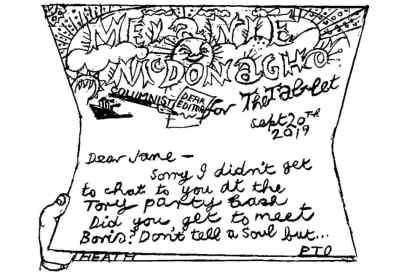 MELANIE
McDONAGH
COLUMNIST
DEAR EDITOR
for The Tablet
Sept 20th
2019
Dear Jane –
Sorry I didn't get
to chat to you at the
Tory party Bash
Did you get to meet
Boris? Don't tell a soul but...
PTO
HEATH